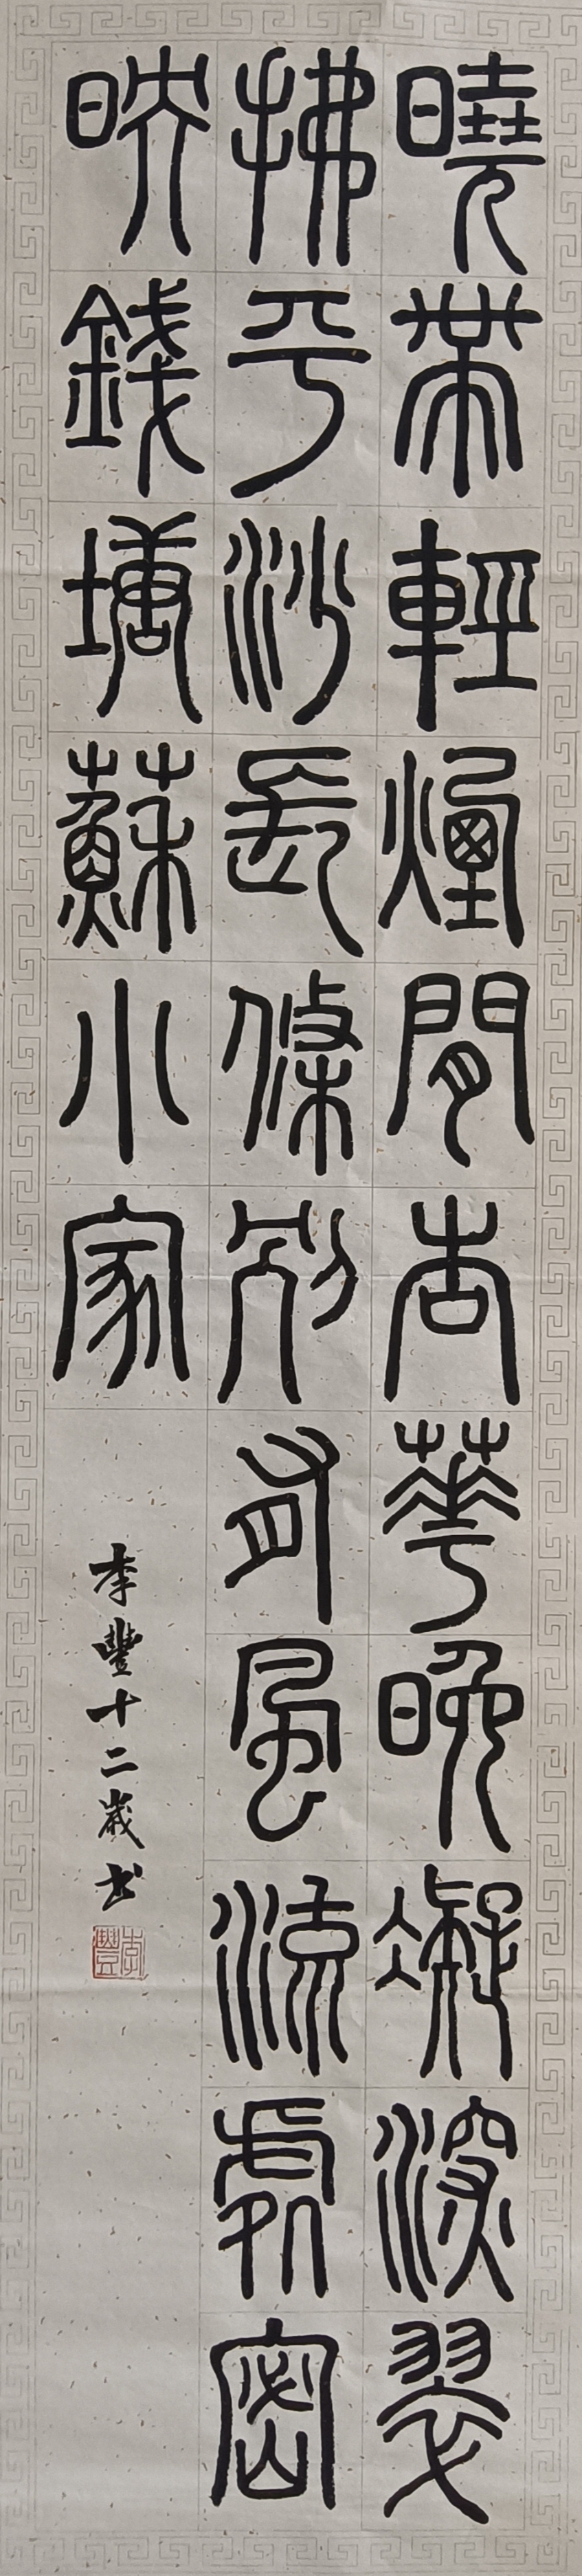 曉帶輕煙閒杏華晚凝深翠
拂平沙長條別有風流處密
映錢塘蘇小家
李豐十二歲书
李豐